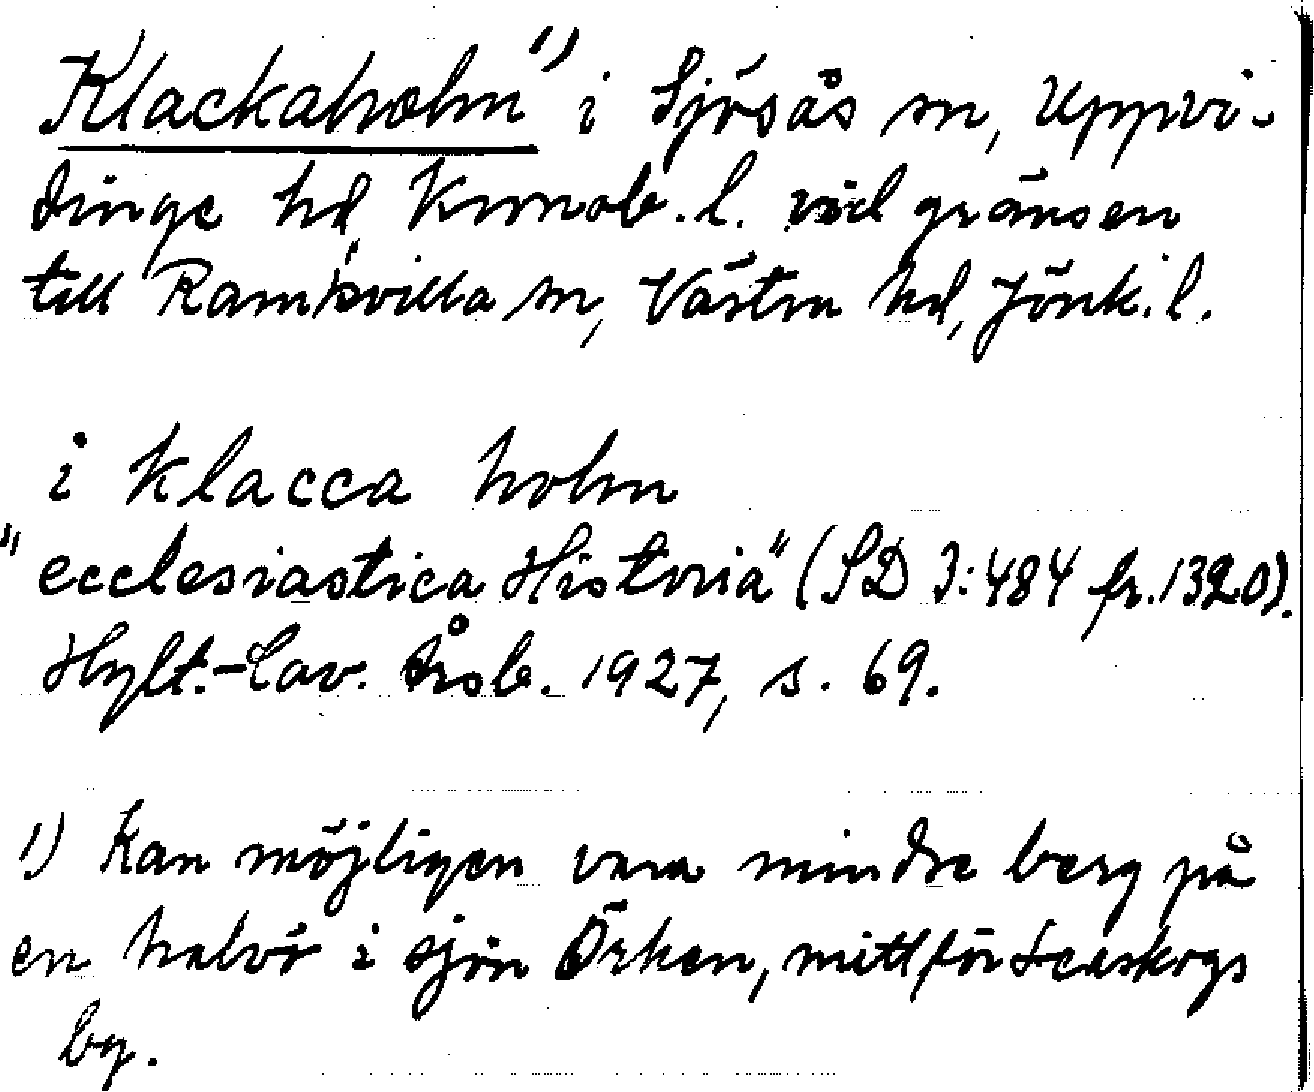 Klackaholm 1) i Sjösås sn, Uppvi-
dinge hd, Kronob. l. vid gränsen
till Ramkvilla sn, Västra hd, Jönk. l.
i klacca holm
"ecclesiastica Historia" (SD 3:484 fr. 1320).
Hylt.-Cav. Årsb. 1927, s. 69.
1) Kan möjligen vara mindre berg på
en halvö i sjön Örken, mitt för
by.